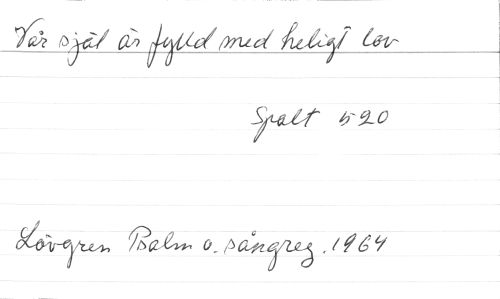 Vår själ är fylld med heligt lov
Spalt 520
Lövgren Psalm o. sångreg. 1964